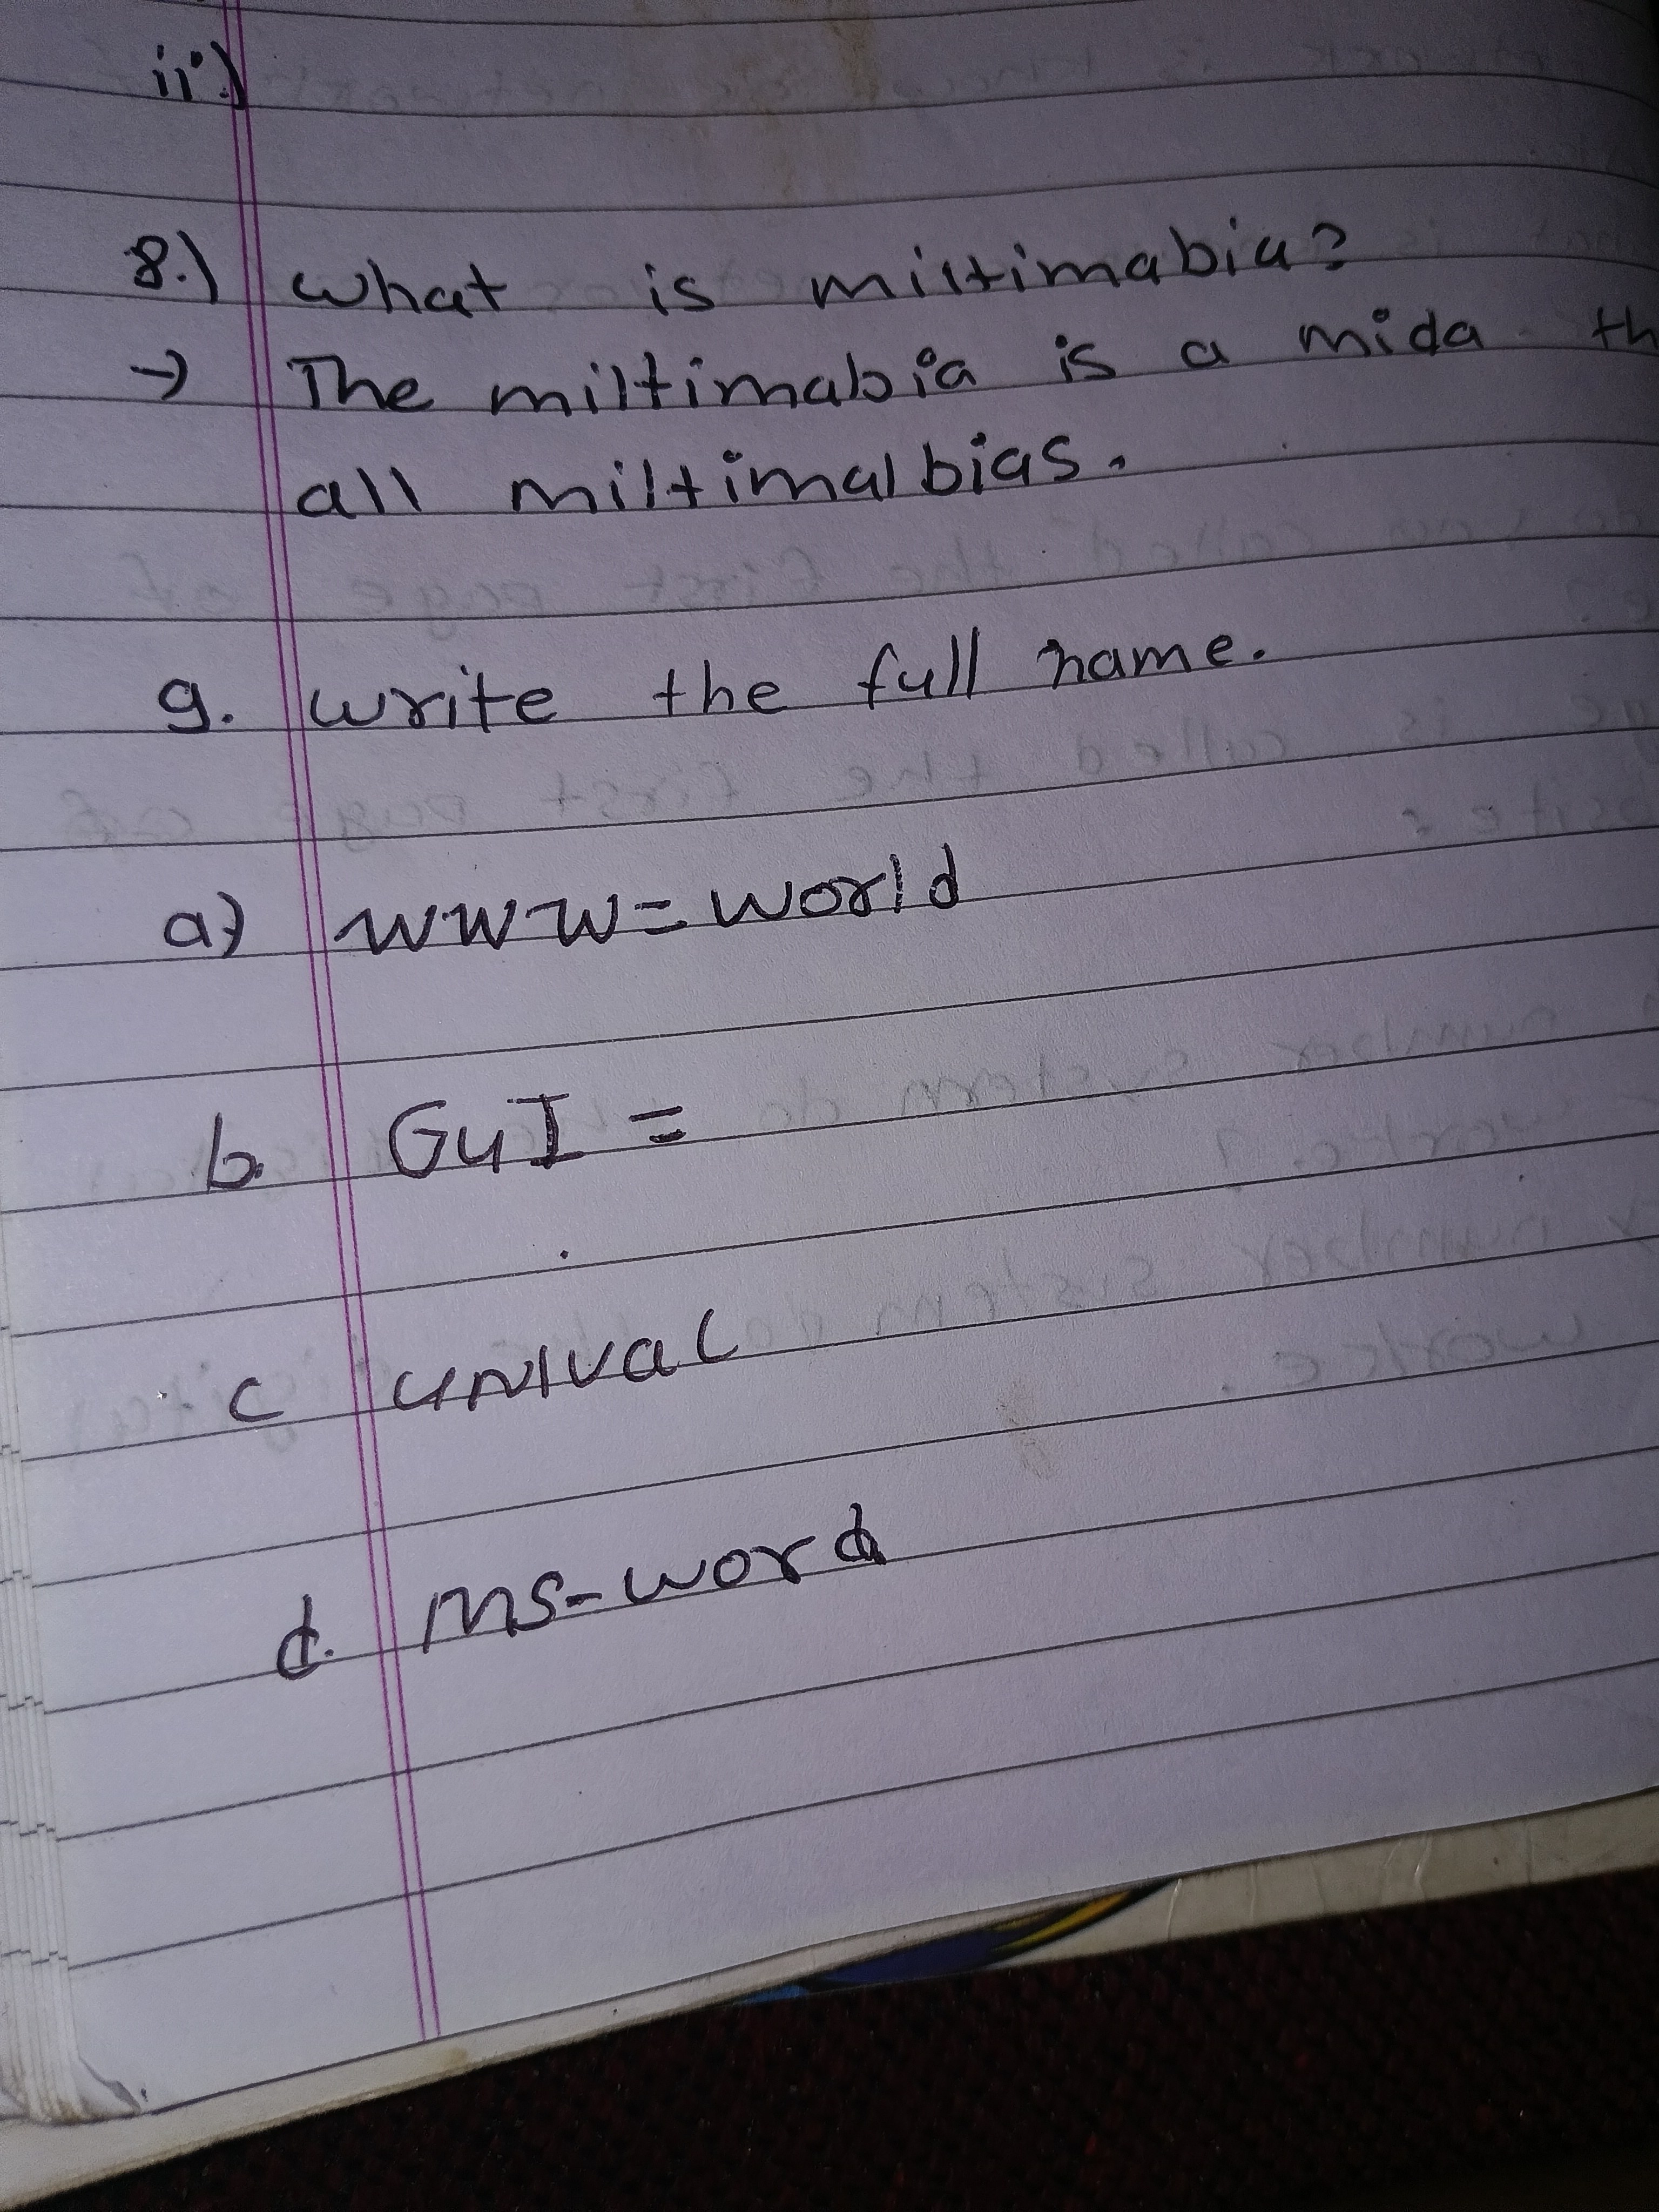 ii)
8.) what is miltimabia?
→ The miltimabia is a mida th
all miltimalbias.
9. write the full name.
a) WWW = world
b. GUI =
c UNIVAC
d. MS-word